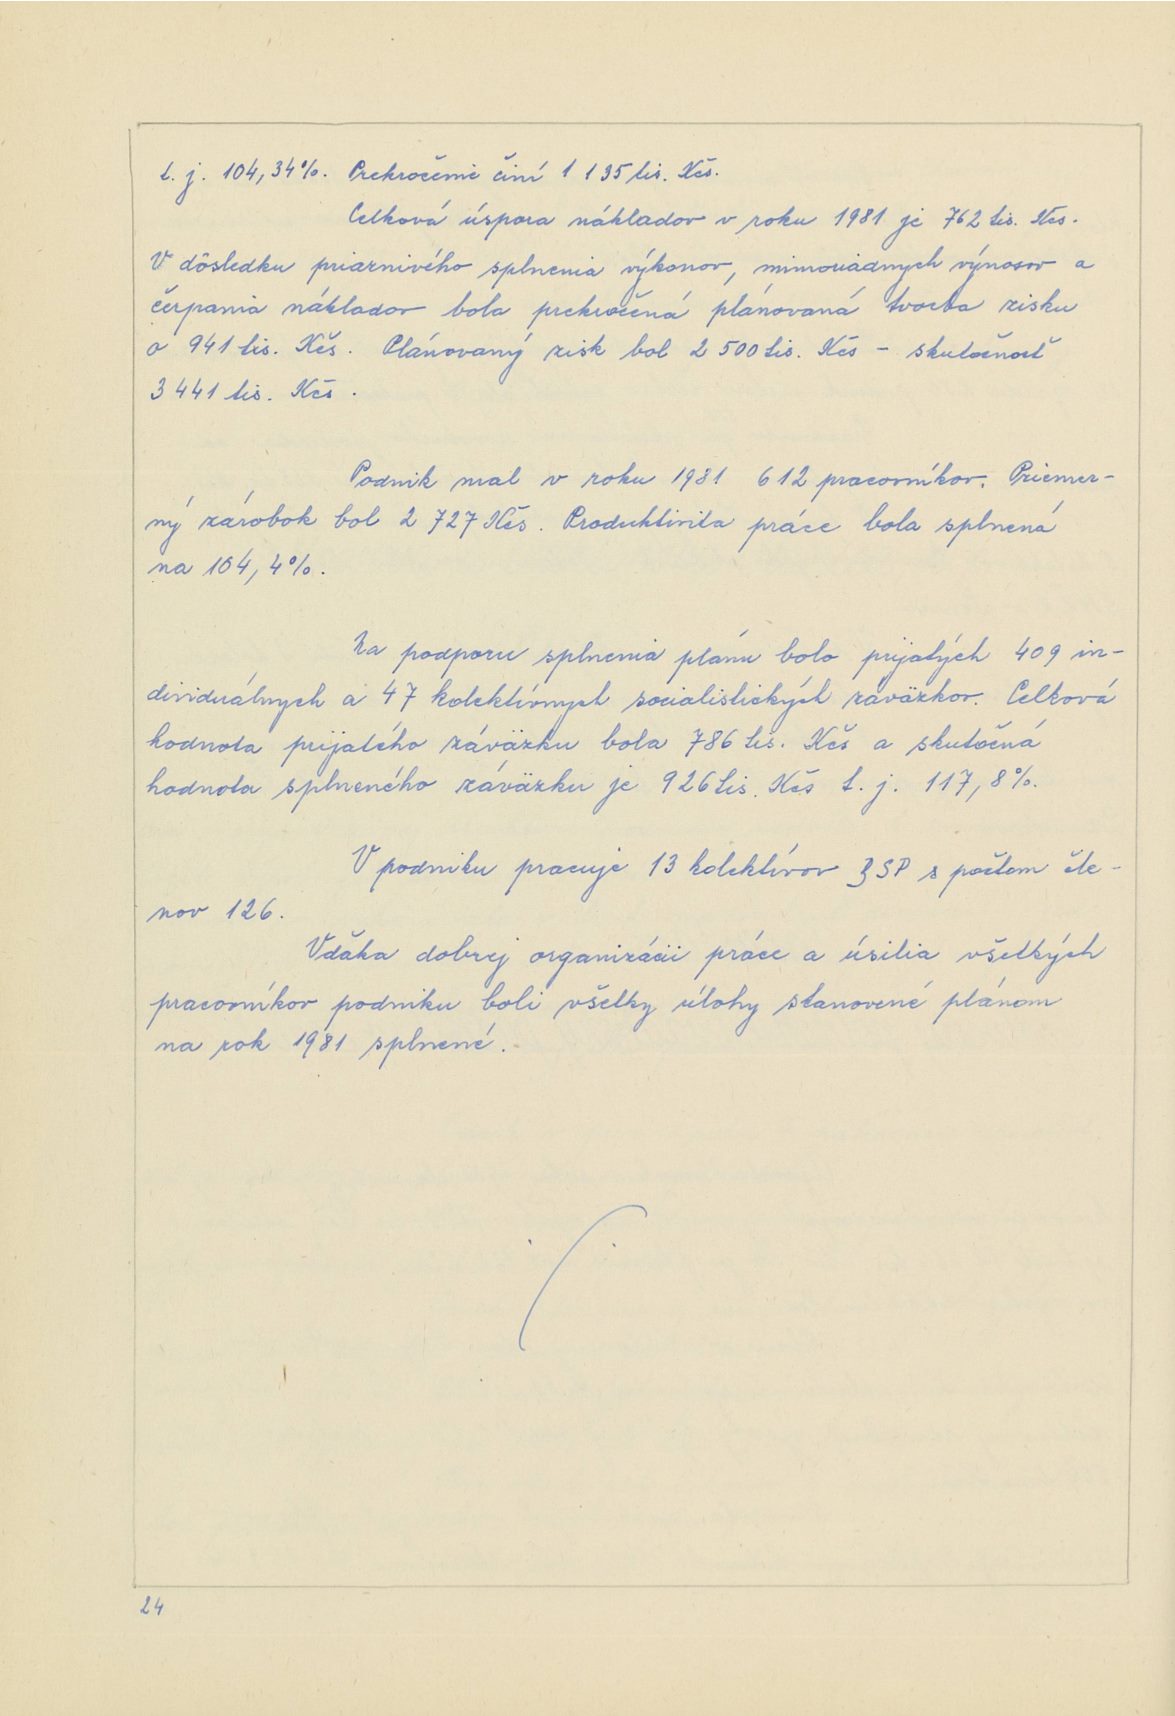 t. j. 104,34%. Prekročenie činí 1 135 tis. Kčs.
Celková úspora nákladov v roku 1981 je 762 tis. Kčs.
V dôsledku priaznivého splnenia výkonov, mimoriadnych výnosov a
čerpania nákladov bola prekročená plánovaná tvorba zisku
o 941 tis. Kčs. Plánovaný zisk bol 2 500 tis. Kčs - skutočnosť
3 441 tis. Kčs.
Podnik mal v roku 1981 612 pracovníkov. Priemer-
ný zárobok bol 2 727 Kčs. Produktivita práce bola splnená
na 104,4%.
Na podporu splnenia plánu bolo prijatých 409 in-
dividuálnych a 47 kolektívnych socialistických záväzkov. Celková
hodnota prijatého záväzku bola 786 tis. Kčs a skutočná
hodnota splneného záväzku je 926 tis. Kčs t. j. 117,8%.
V podniku pracuje 13 kolektívov BSP s počtom čle-
nov 126.
Vďaka dobrej organizácii práce a úsilia všetkých
pracovníkov podniku boli všetky úlohy stanovené plánom
na rok 1981 splnené.
24